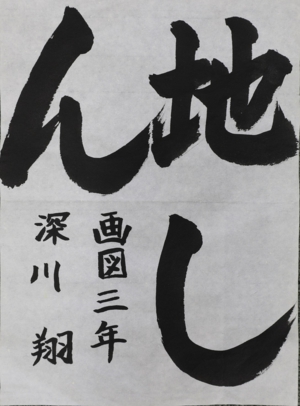 地し
ん
画図三年
深川翔